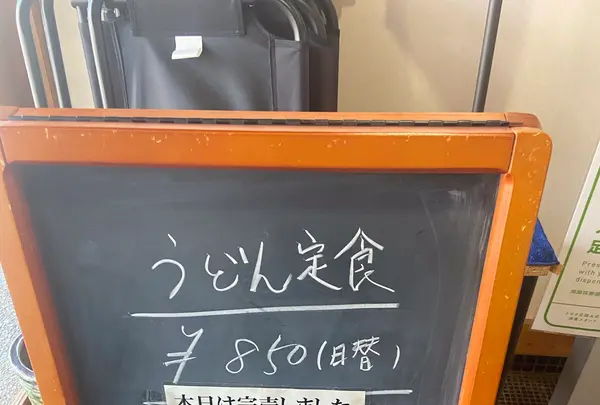 うどん定食
¥850(日替)
本日は完売しました
Pres
with y
dispen